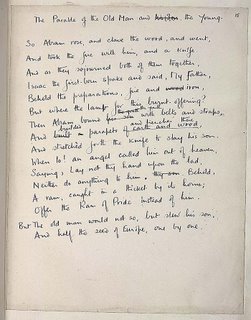 The Parable of the Old Man and the Young.
So Abram rose, and clave the wood, and went,
And took the fire with him, and a knife
And as they sojourned both of them together,
Isaac the first-born spake and said, My Father
Behold the preparations, fire and wood iron,
But where the lamb for this burnt-offering?
the youth
Then Abram bound his son with belts and straps,
builded and trenches there
And built parapets of earth and wood
And stretched forth the knife to slay his son.
When lo! an angel called him out of heaven,
Saying, Lay not thy hand upon the lad,
Neither do anything to him. Behold,
A ram, caught in a thicket by its horns;
Offer the Ram of Pride instead of him.
But the old man would not so, but slew his son,
And half the seed of Europe, one by one.